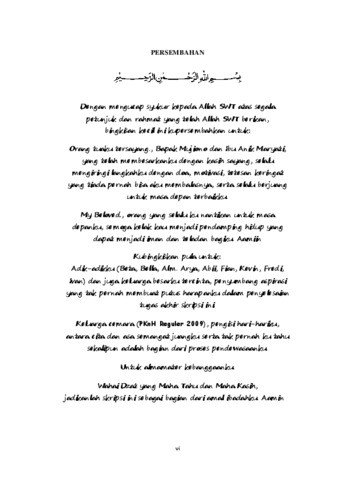 PERSEMBAHAN
بِسْمِ اللهِ الرَّحْمٰنِ الرَّحِيْمِ
Dengan mengucap syukur kepada Allah SWT atas segala
petunjuk dan rahmat yang telah Allah SWT berikan,
bingkisan kecil ini kupersembahkan untuk:
Orang tuaku tersayang, Bapak Mujimo dan Ibu Anik Maryati,
yang telah membesarkanku dengan kasih sayang, selalu
mengiringi langkahku dengan doa, motivasi, tetesan keringat
yang tiada pernah bisa aku membalasnya, serta selalu berjuang
untuk masa depan terbaikku
My Beloved, orang yang selalu ku nantikan untuk masa
depanku, semoga kelak kau menjadi pendamping hidup yang
dapat menjadi iman dan teladan bagiku Aamiin
Kubingkiskan pula untuk:
Adik-adikku (Beta, Bella, Alm. Arya, Abil, Fian, Kevin, Fredi,
Ivan) dan juga keluarga besarku tercinta, penyumbang aspirasi
yang tak pernah membuat putus harapanku dalam penyelesaian
tugas akhir skripsi ini
Keluarga cemara (PKnH Reguler 2009), pengisi hari-hariku,
antara cita dan asa semangat juangku serta tak pernah ku tahu
sekalipun adalah bagian dari proses pendewasaanku
Untuk almamater kebanggaanku
Wahai Dzat yang Maha Tahu dan Maha Kasih,
jadikanlah skripsi ini sebagai bagian dari amal ibadahku Aamin
vi